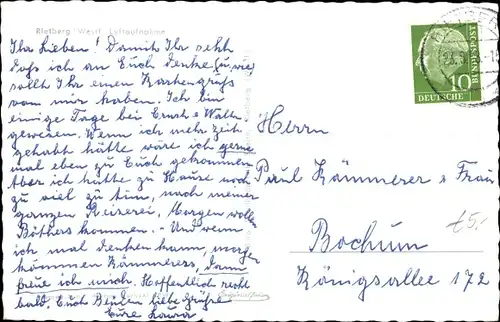 Rietberg Westf. Luftaufnahme
Ihr Lieben! Damit Ihr seht
daß ich an Euch denke,
sollt Ihr einen Kartengruß
von mir haben. Ich bin
einige Tage bei Ernst u Walter
gewesen. Wenn ich mehr Zeit
gehabt hätte wäre ich gerne
mal eben zu Euch gekommen
Aber ich hatte zu Hause noch
zu viel zu tun, nach meiner
ganzen Reiserei. Morgen wollen
kommen. - Und wenn
ich mal denken kann, morgen
kommen Kämmerers, dann
freue ich mich. Hoffentlich recht
bald. Euch Beiden liebe Grüße
Eure
DEUTSCHE
BUNDESPOST
10
Herrn
Paul Kämmerer u Frau
Bochum
Königsallee 172
£5,-